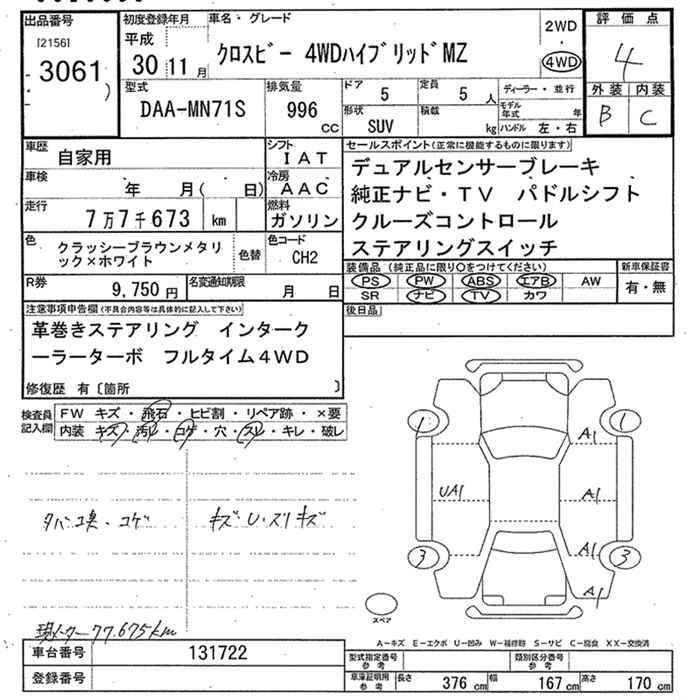 出品番号
[2156]
3061
初度登録年月
平成
30 11 月
車名・グレード
クロスビー 4WDハイブリッドMZ
2WD
4WD
評価点
4
外装 内装
B C
型式
DAA-MN71S
排気量
996
cc
ドア
5
定員
5 人
形状
SUV
積載
kg
ディーラー・並行
モデル年式 年
ハンドル 左・右
車歴
自家用
シフト
IAT
車検
年 月( 日)
冷房
AAC
走行
7万7千673 km
燃料
ガソリン
色
クラッシーブラウンメタリ
ック×ホワイト
色替
色コード
CH2
R券
9,750 円
名変通知期限
月 日
セールスポイント(正常に機能するものに限ります)
デュアルセンサーブレーキ
純正ナビ・TV パドルシフト
クルーズコントロール
ステアリングスイッチ
装備品(純正品に限り○をつけてください)
PS PW ABS エアB AW
SR ナビ TV カワ
新車保証書
有・無
後日品
注意事項申告欄(不具合内容等は具体的に記入して下さい)
革巻きステアリング インターク
ーラーターボ フルタイム4WD
修復歴 有〔箇所 〕
検査員記入欄
FW キズ・飛石・ヒビ割・リペア跡・×要
内装 キズ・汚レ・コゲ・穴・スレ・キレ・破レ
タバコ臭・コゲ
キズU・スリキズ
現メーター77.675km
1
1
A1
UA1
A1
A1
3
3
A1
スペア
A-キズ E-エクボ U-凹み W-補修跡 S-サビ C-腐食 XX-交換済
車台番号
131722
登録番号
型式指定番号
参考
類別区分番号
参考
車庫証明用
参考
長さ 376 cm 幅 167 cm 高さ 170 cm